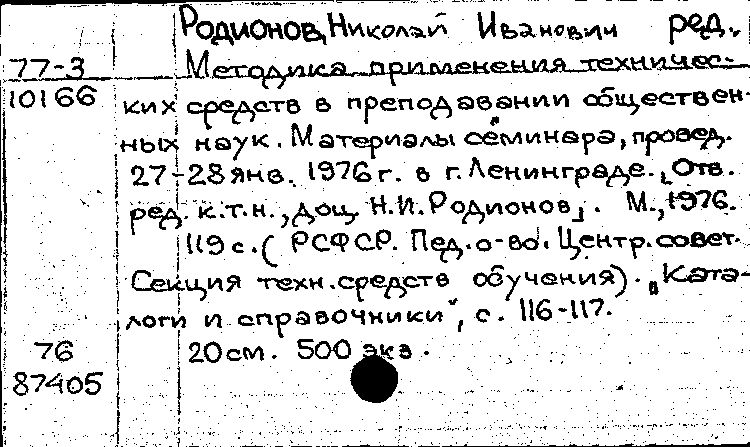 Родионов, Николай Иванович ред.
77-3 Методика применения техничес-
10166 ких средств в преподавании обществен-
ных наук. Материалы семинара, провед.
27-28 янв. 1976 г. в г. Ленинграде. [Отв.
ред. к.т.н., доц. Н.И. Родионов]. М., 1976.
119 с. (РСФСР. Пед. о-во. Центр. совет.
Секция техн. средств обучения). "Ката-
логи и справочники", с. 116-117.
76 20 см. 500 экз.
87405